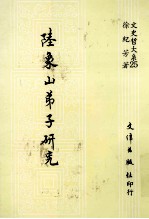 文史哲大系25
徐紀芳著
陸象山弟子研究
文津出版社印行